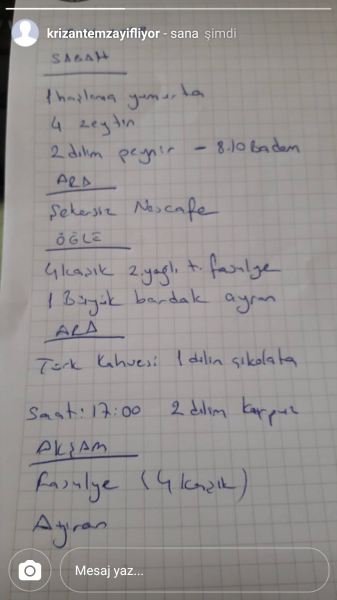 krizantemzayifliyor - sana şimdi
SABAH
1 haşlama yumurta
4 zeytin
2 dilim peynir - 8.10 Badem
ARA
Şekersiz Nescafe
ÖĞLE
4 kaşık z.yağlı t. fasülye
1 Büyük bardak ayran
ARA
Türk kahvesi 1 dilim çikolata
Saat: 17:00 2 dilim karpuz
AKŞAM
Fasulye (4 kaşık)
Ayran
Mesaj yaz...